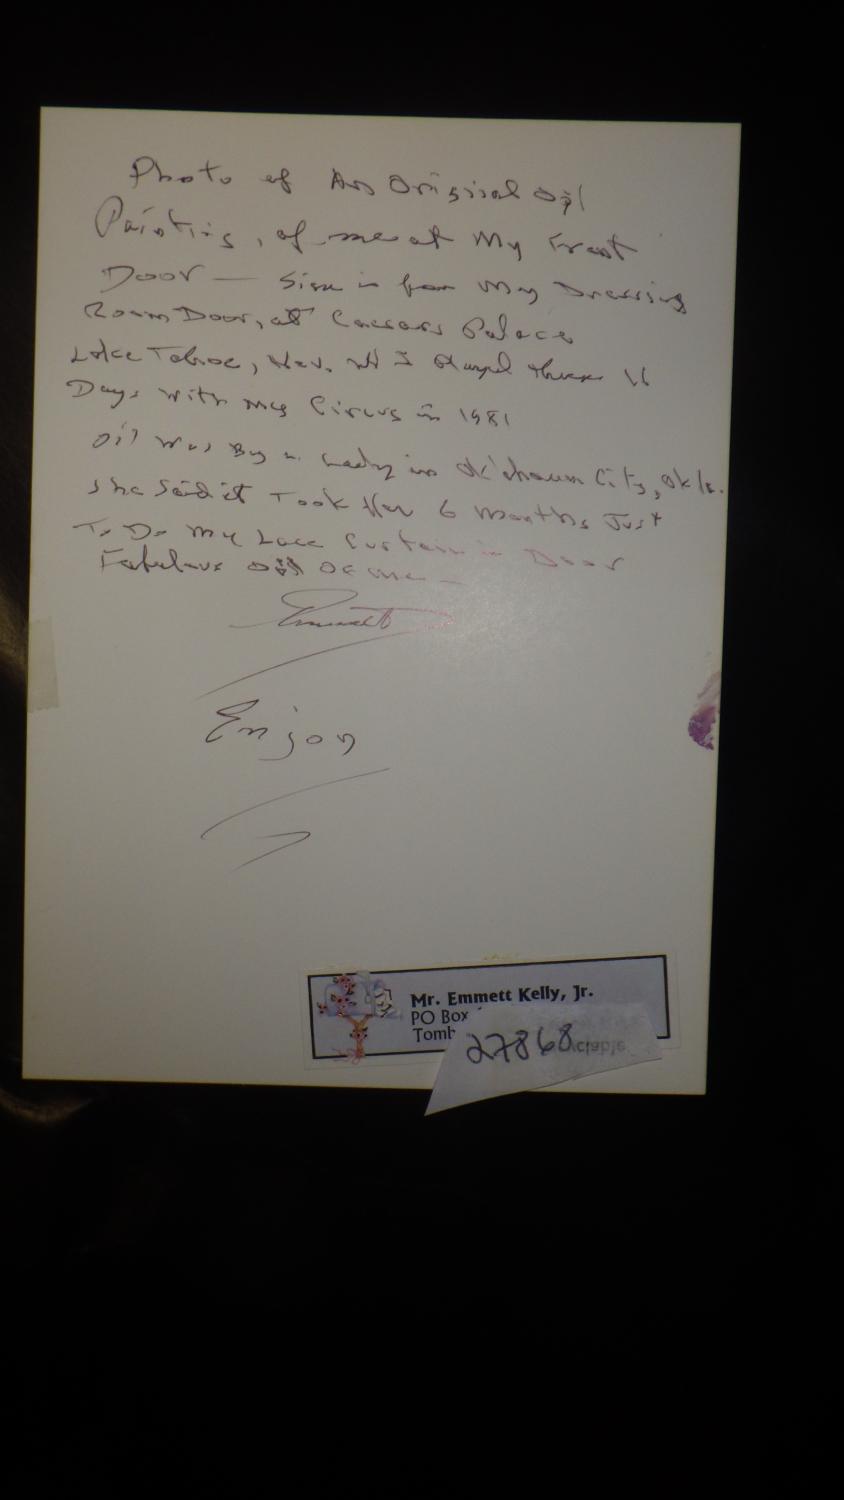 Photo of An Original Oil
Painting, of me at My Front
Door — Sign is from My Dressing
Room Door, at Caesars Palace
Lake Tahoe, Nev. I Played there 16
Days with my Circus in 1981
Oil Was By a Lady in City, Okla.
she Said it Took Her 6 Months Just
To Do My Lace Curtain in Door
Fabulous Oil Of me —
Emmett
Enjoy
Mr. Emmett Kelly, Jr.
PO Box
Tomb
27868